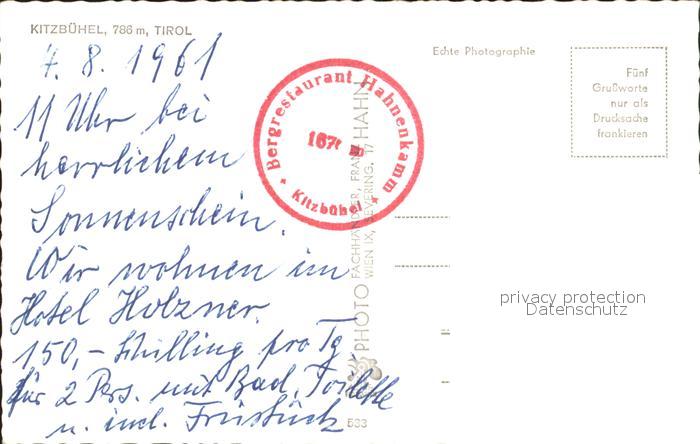 KITZBÜHEL, 786 m, TIROL
7. 8. 1961
11 Uhr bei
herrlichem
Sonnenschein.
Wir wohnen im
Hotel Holzner.
150,- Schilling pro Tg.
für 2 Pers. mit Bad, Toilette
u. incl. Früstück
Bergrestaurant Hahnenkamm
Kitzbühel
PHOTO HAHN
FACHHÄNDLER, FRANZ
WIEN IX, SEVERING. 17
533
Echte Photographie
Fünf
Grußworte
nur als
Drucksache
frankieren
privacy protection
Datenschutz